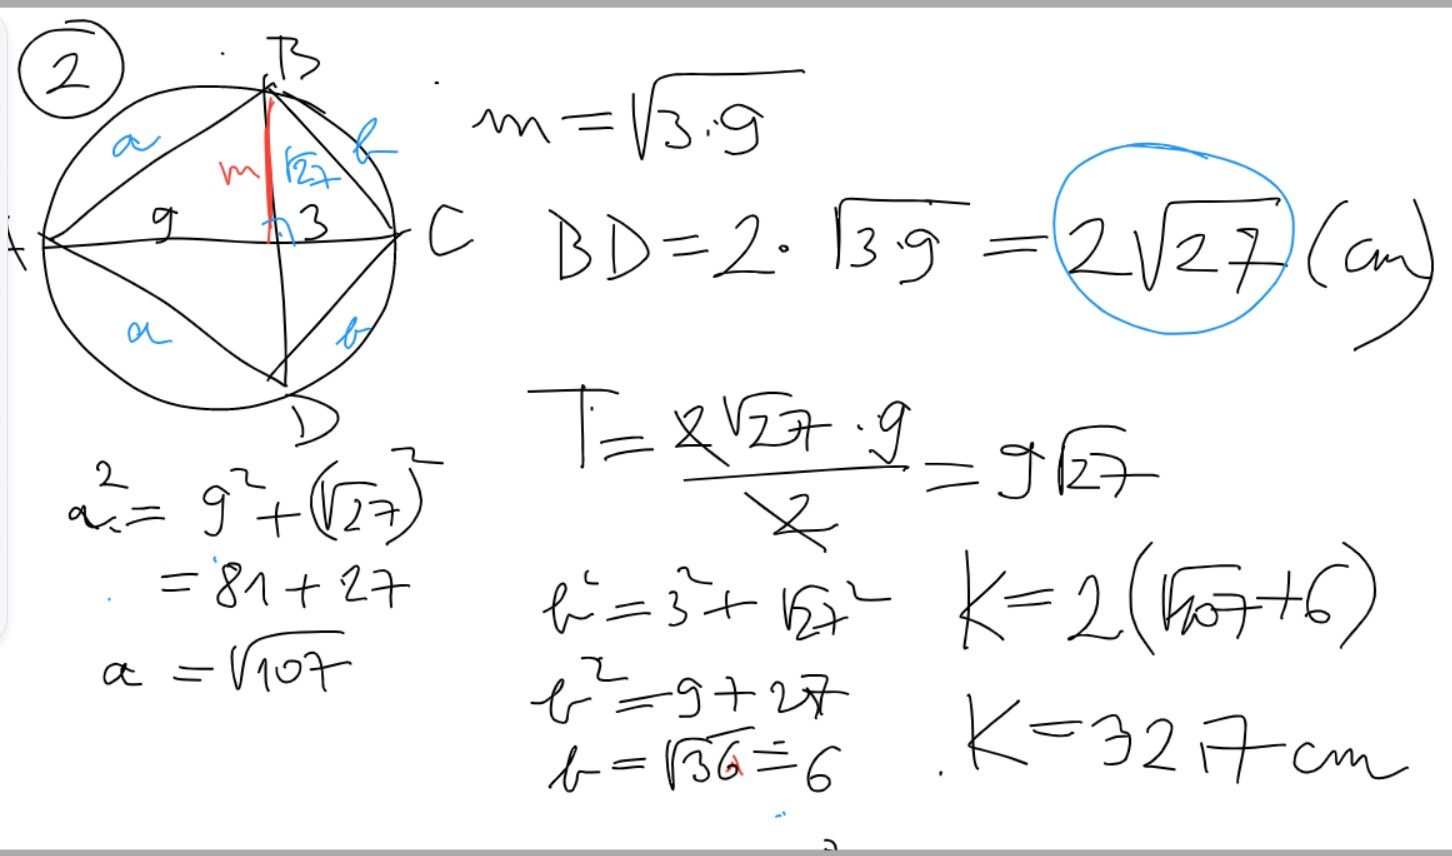 2
B
a
b
m
√27
m = √3·9
A
9
3
C
BD = 2·√3·9 = 2√27 (cm)
a
b
D
T = 2√27·9 / 2 = 9√27
a² = 9² + (√27)²
= 81 + 27
a = √107
b² = 3² + √27²
b² = 9 + 27
b = √36 = 6
K = 2(√107 + 6)
K = 32,7 cm